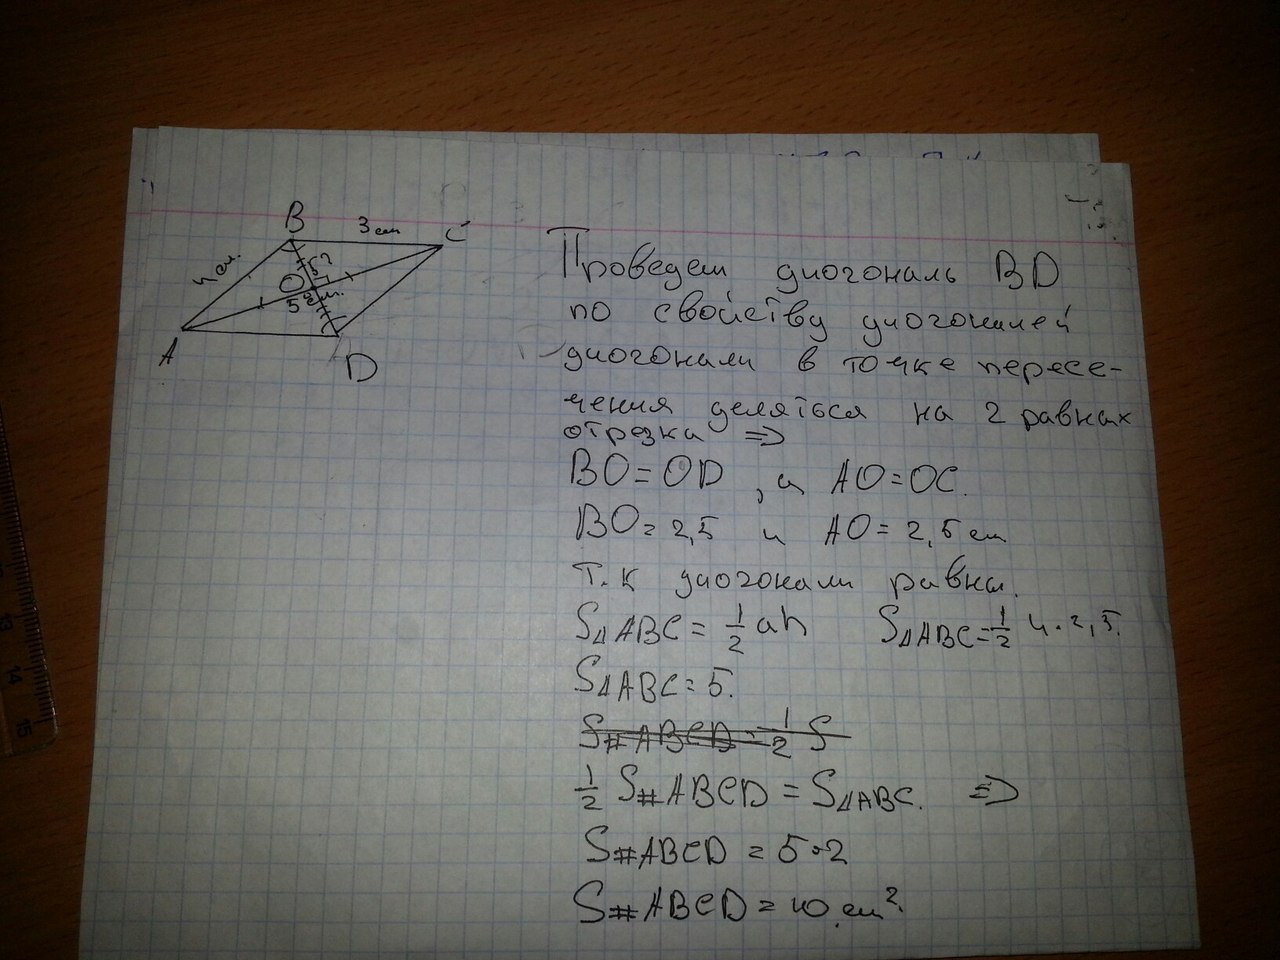 B
3 см
C
4 см.
5?
O
5 см.
A
D
Проведем диогональ BD
по свойству диогоналей
диогонали в точке пересе-
чения деляться на 2 равных
отрезка =>
BO = OD , и AO = OC.
BO = 2,5 и AO = 2,5 см
Т.к диогонали равны.
S△ABC = 1/2 ah S△ABC = 1/2 4 · 2,5.
S△ABC = 5.
S#ABCD = 1/2 S
1/2 S#ABCD = S△ABC. =>
S#ABCD = 5 · 2
S#ABCD = 10 см².
14
15